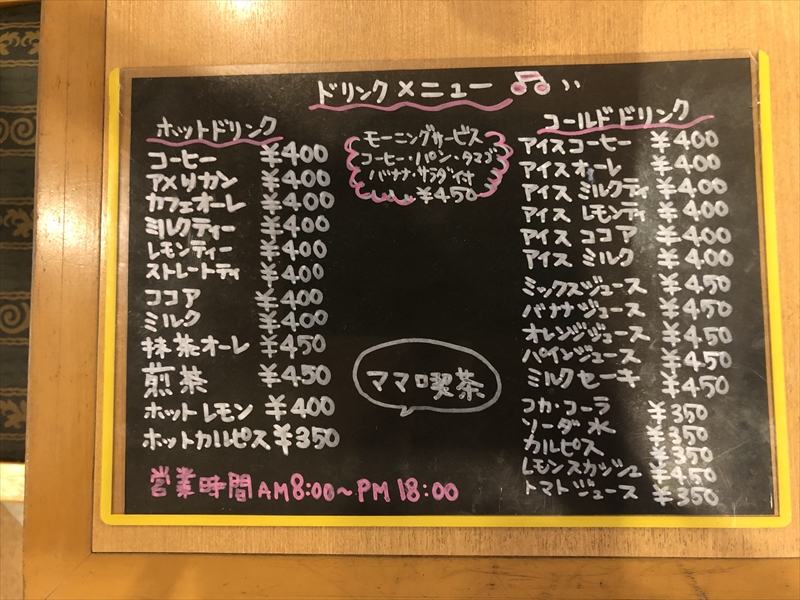 ドリンクメニュー
ホットドリンク
コーヒー ¥400
アメリカン ¥400
カフェオーレ ¥400
ミルクティー ¥400
レモンティー ¥400
ストレートティ ¥400
ココア ¥400
ミルク ¥400
抹茶オーレ ¥450
煎茶 ¥450
ホットレモン ¥400
ホットカルピス ¥350
モーニングサービス
コーヒー・パン・タマゴ
バナナ・サラダ付
¥450
ママロ喫茶
コールドドリンク
アイスコーヒー ¥400
アイスオーレ ¥400
アイスミルクティ ¥400
アイスレモンティ ¥400
アイスココア ¥400
アイスミルク ¥400
ミックスジュース ¥450
バナナジュース ¥450
オレンジジュース ¥450
パインジュース ¥450
ミルクセーキ ¥450
コカ・コーラ ¥350
ソーダ水 ¥350
カルピス ¥350
レモンスカッシュ ¥450
トマトジュース ¥350
営業時間 AM8:00〜PM18:00